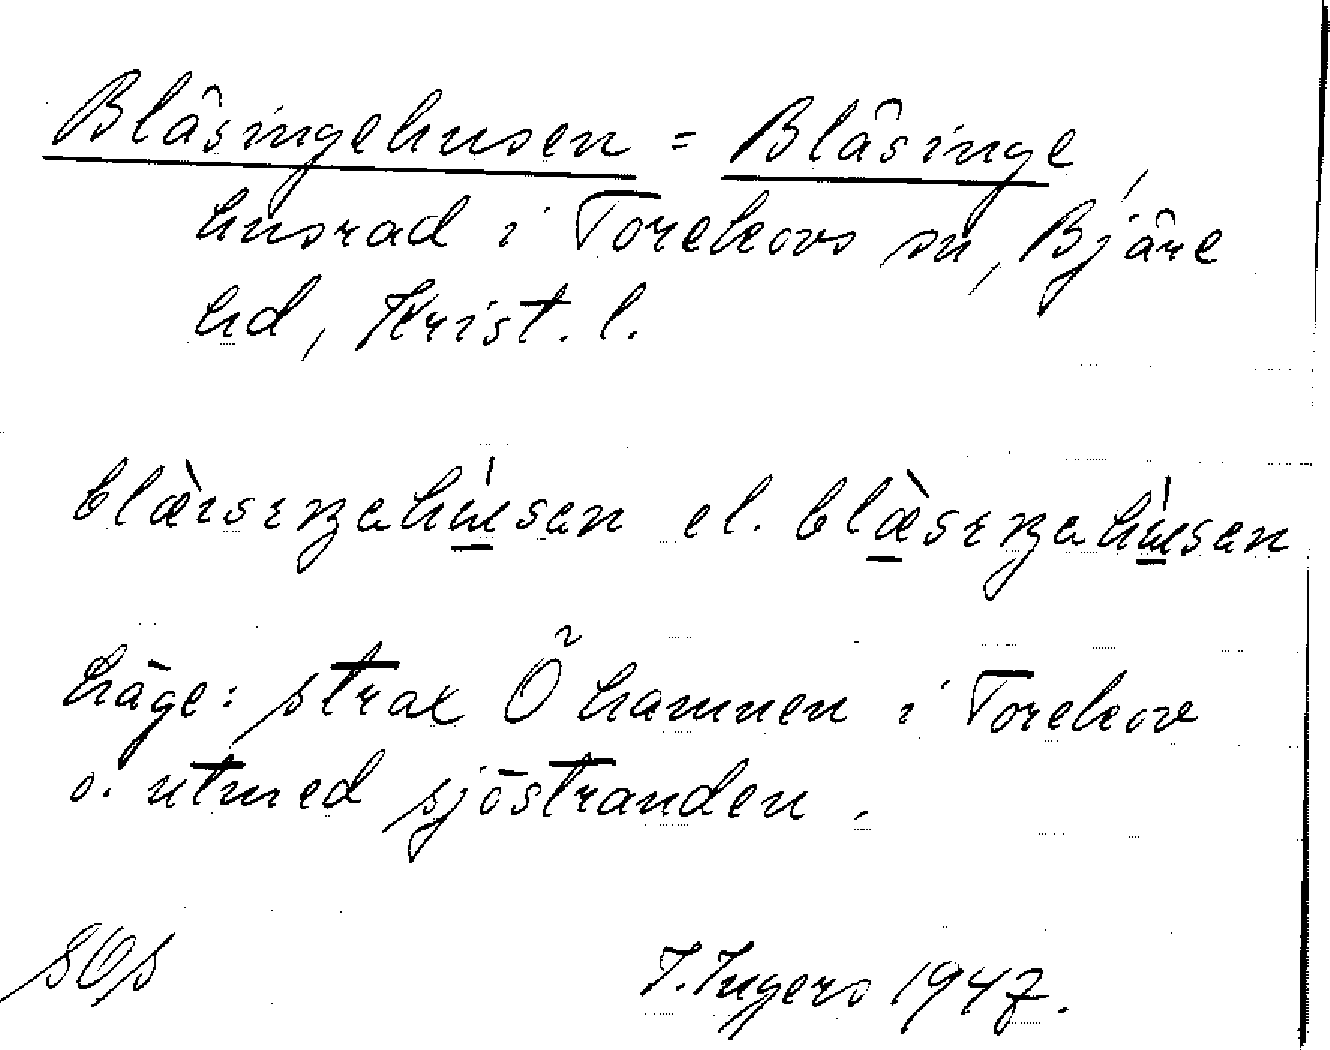 Blåsingehusen = Blåsinge,
husrad i Torekovs sn, Bjäre
hd, Krist. l.
blæ̀ısıŋahúsan el. blæ̀sıŋahúsan
Läge: strax Ö hamnen i Torekov
o. utmed sjöstranden.
SOS I. Ingers 1947.